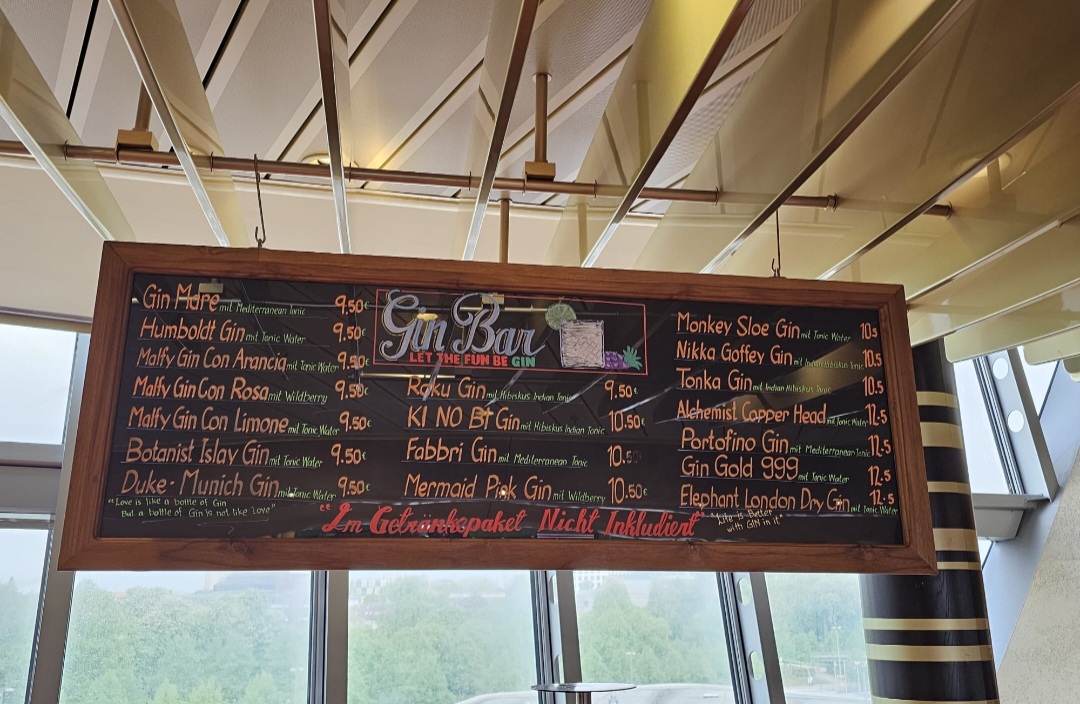 Gin Mare mit Mediterranean Tonic 9.50€
Humboldt Gin mit Tonic Water 9.50€
Malfy Gin Con Arancia mit Tonic Water 9.50€
Malfy Gin Con Rosa mit Wildberry 9.50€
Malfy Gin Con Limone mit Tonic Water 9.50€
Botanist Islay Gin mit Tonic Water 9.50€
Duke-Munich Gin mit Tonic Water 9.50€
"Love is like a bottle of Gin
But a bottle of Gin is not like Love"
Gin Bar
LET THE FUN BE GIN
Roku Gin mit Hibiskus Indian Tonic 9.50€
KI NO BI Gin mit Hibiskus Indian Tonic 10.50€
Fabbri Gin mit Mediterranean Tonic 10.5
Mermaid Pink Gin mit Wildberry 10.50€
Monkey Sloe Gin mit Tonic Water 10.5
Nikka Goffey Gin mit Indian Hibiskus Tonic 10.5
Tonka Gin mit Indian Hibiskus Tonic 10.5
Alchemist Copper Head mit Tonic Water 12.5
Portofino Gin mit Mediterranean Tonic 12.5
Gin Gold 999 mit Tonic Water 12.5
Elephant London Dry Gin mit Tonic Water 12.5
"Im Getränkepaket Nicht Inkludiert"
"Life is Better
with GIN in it"